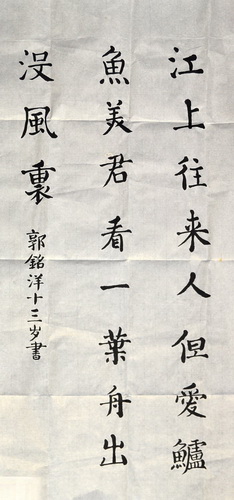 江上往来人但愛鱸
魚美君看一葉舟出
没風裏
郭銘洋十三岁書